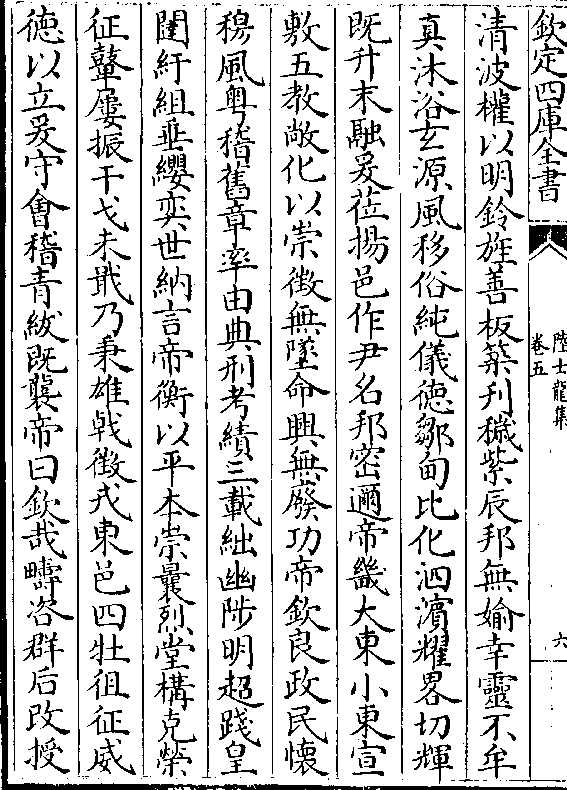 欽定四庫全書
陸士龍集
卷五
六
清波權以明鈴旌善板築刋穢紫辰邦無媮幸靈不牟
真沐浴玄源風移俗純儀徳鄒甸比化泗濵耀畧切輝
既升末融爰莅揚邑作尹名邦密邇帝畿大東小東宣
敷五教敞化以崇徴無墜命興無廢功帝欽良政民懐
穆風粤稽舊章率由典刑考績三載絀幽陟明超踐皇
闥紆組垂纓奕世納言帝衡以平本崇曩烈堂構克榮
征鼙屢振干戈未戢乃秉雄戟徴戎東邑四牡徂征威
徳以立爰守會稽青紱既襲帝曰欽哉疇咨群后改授